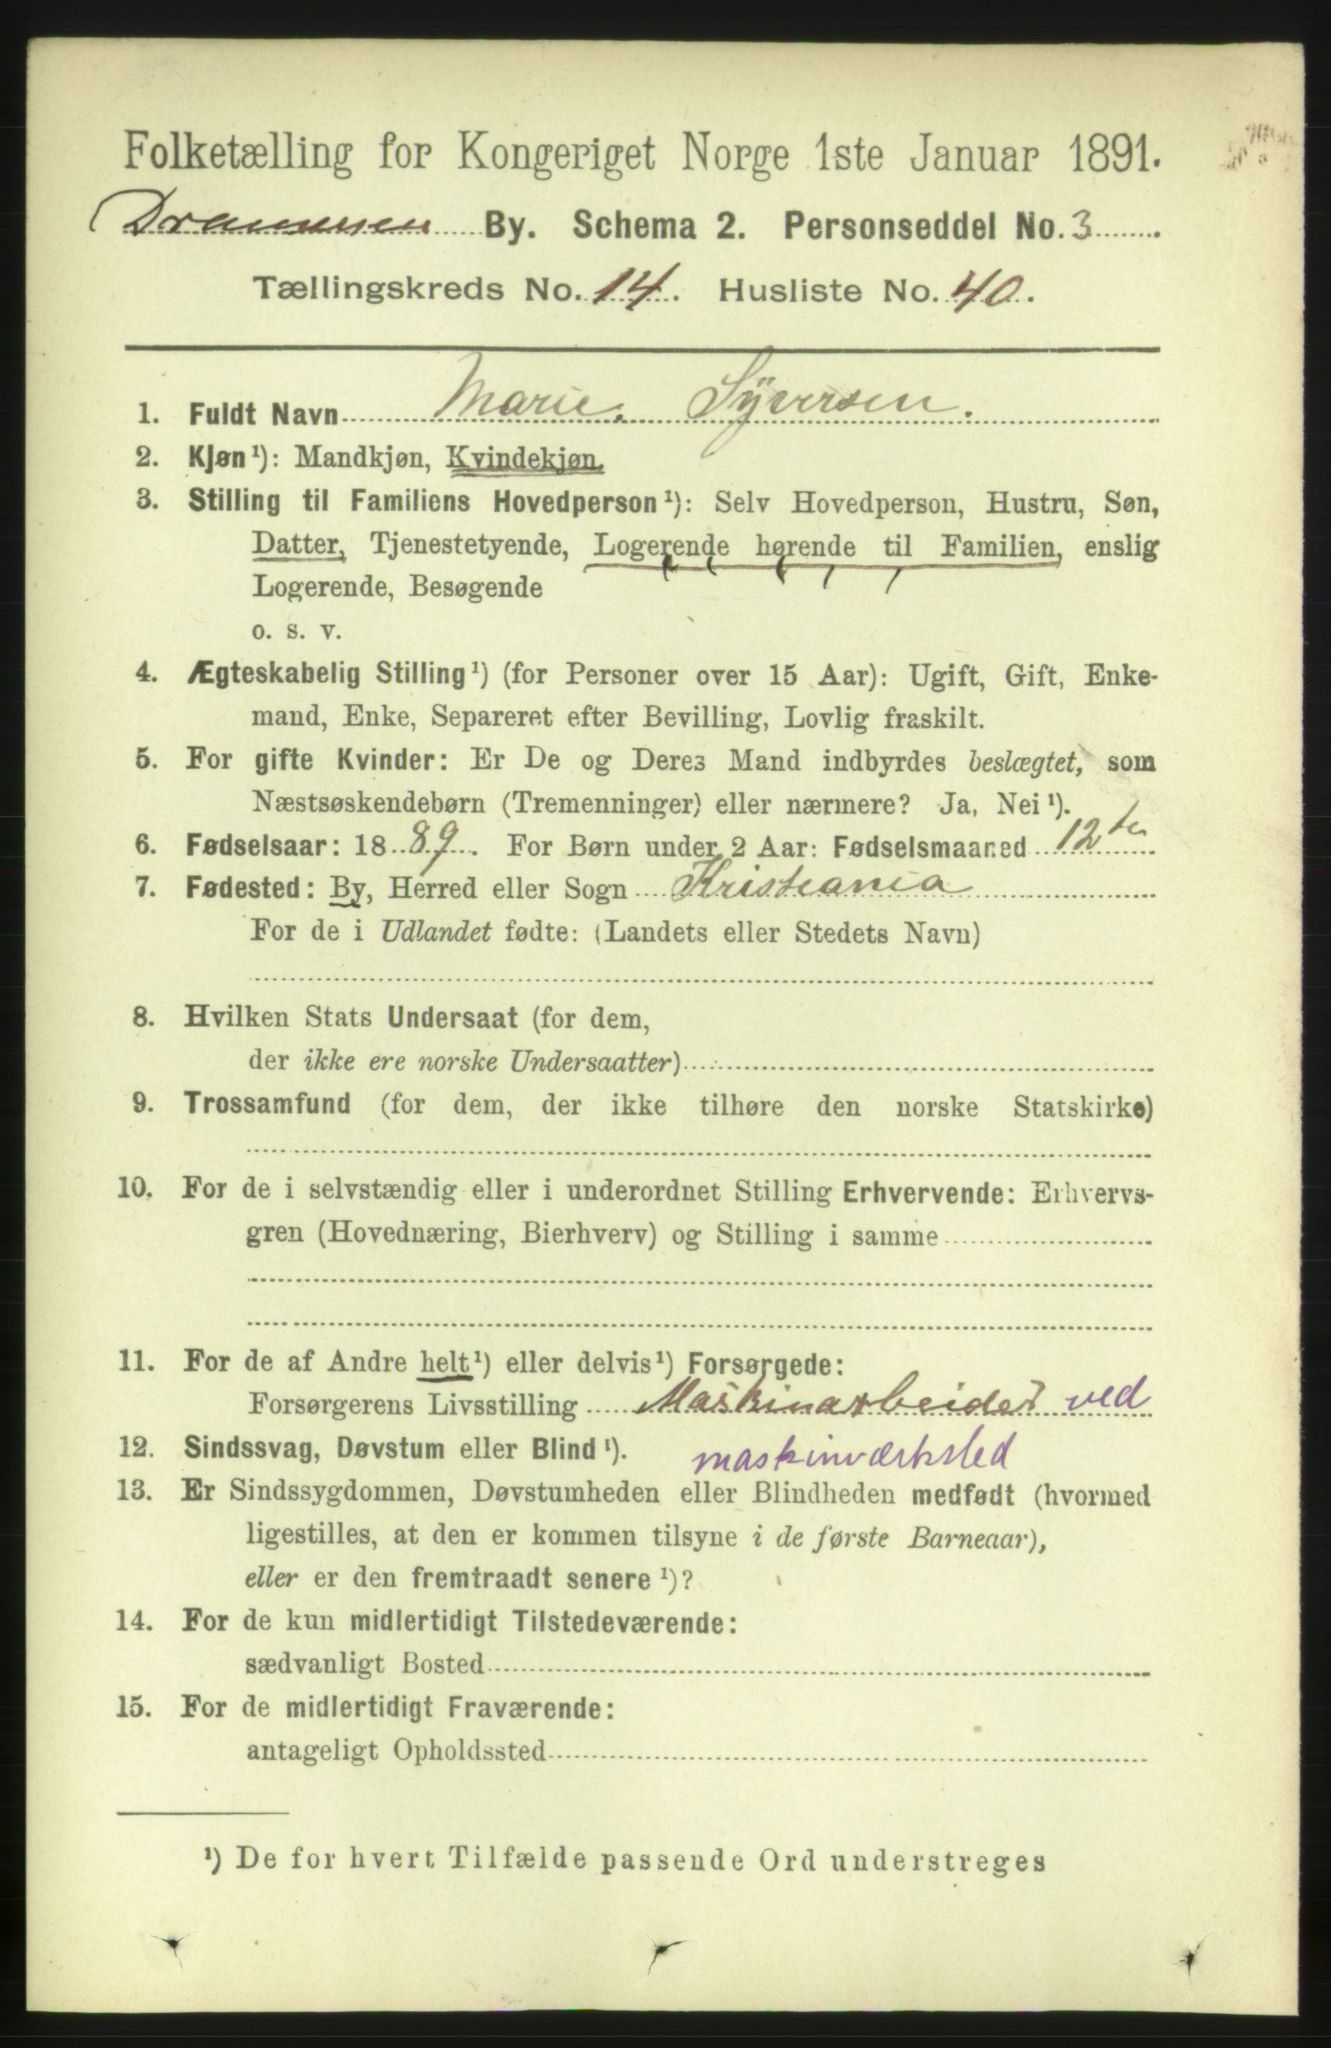 Folketælling for Kongeriget Norge 1ste Januar 1891.
Drammen By. Schema 2. Personseddel No. 3
Tællingskreds No. 14. Husliste No. 40.
1. Fuldt Navn Marie. Syversen.
2. Kjøn ¹): Mandkjøn, Kvindekjøn.
3. Stilling til Familiens Hovedperson ¹): Selv Hovedperson, Hustru, Søn,
Datter, Tjenestetyende, Logerende hørende til Familien, enslig
Logerende, Besøgende
o. s. v.
4. Ægteskabelig Stilling ¹) (for Personer over 15 Aar): Ugift, Gift, Enke-
mand, Enke, Separeret efter Bevilling, Lovlig fraskilt.
5. For gifte Kvinder: Er De og Deres Mand indbyrdes beslægtet, som
Næstsøskendebørn (Tremenninger) eller nærmere? Ja, Nei ¹).
6. Fødselsaar: 1889. For Børn under 2 Aar: Fødselsmaaned 12te
7. Fødested: By, Herred eller Sogn Kristiania
For de i Udlandet fødte: (Landets eller Stedets Navn)
8. Hvilken Stats Undersaat (for dem,
der ikke ere norske Undersaatter)
9. Trossamfund (for dem, der ikke tilhøre den norske Statskirke)
10. For de i selvstændig eller i underordnet Stilling Erhvervende: Erhvervs-
gren (Hovednæring, Bierhverv) og Stilling i samme
11. For de af Andre helt ¹) eller delvis ¹) Forsørgede:
Forsørgerens Livsstilling Maskinarbeider ved
12. Sindssvag, Døvstum eller Blind ¹). maskinværksted
13. Er Sindssygdommen, Døvstumheden eller Blindheden medfødt (hvormed
ligestilles, at den er kommen tilsyne i de første Barneaar),
eller er den fremtraadt senere ¹)?
14. For de kun midlertidigt Tilstedeværende:
sædvanligt Bosted
15. For de midlertidigt Fraværende:
antageligt Opholdssted
¹) De for hvert Tilfælde passende Ord understreges